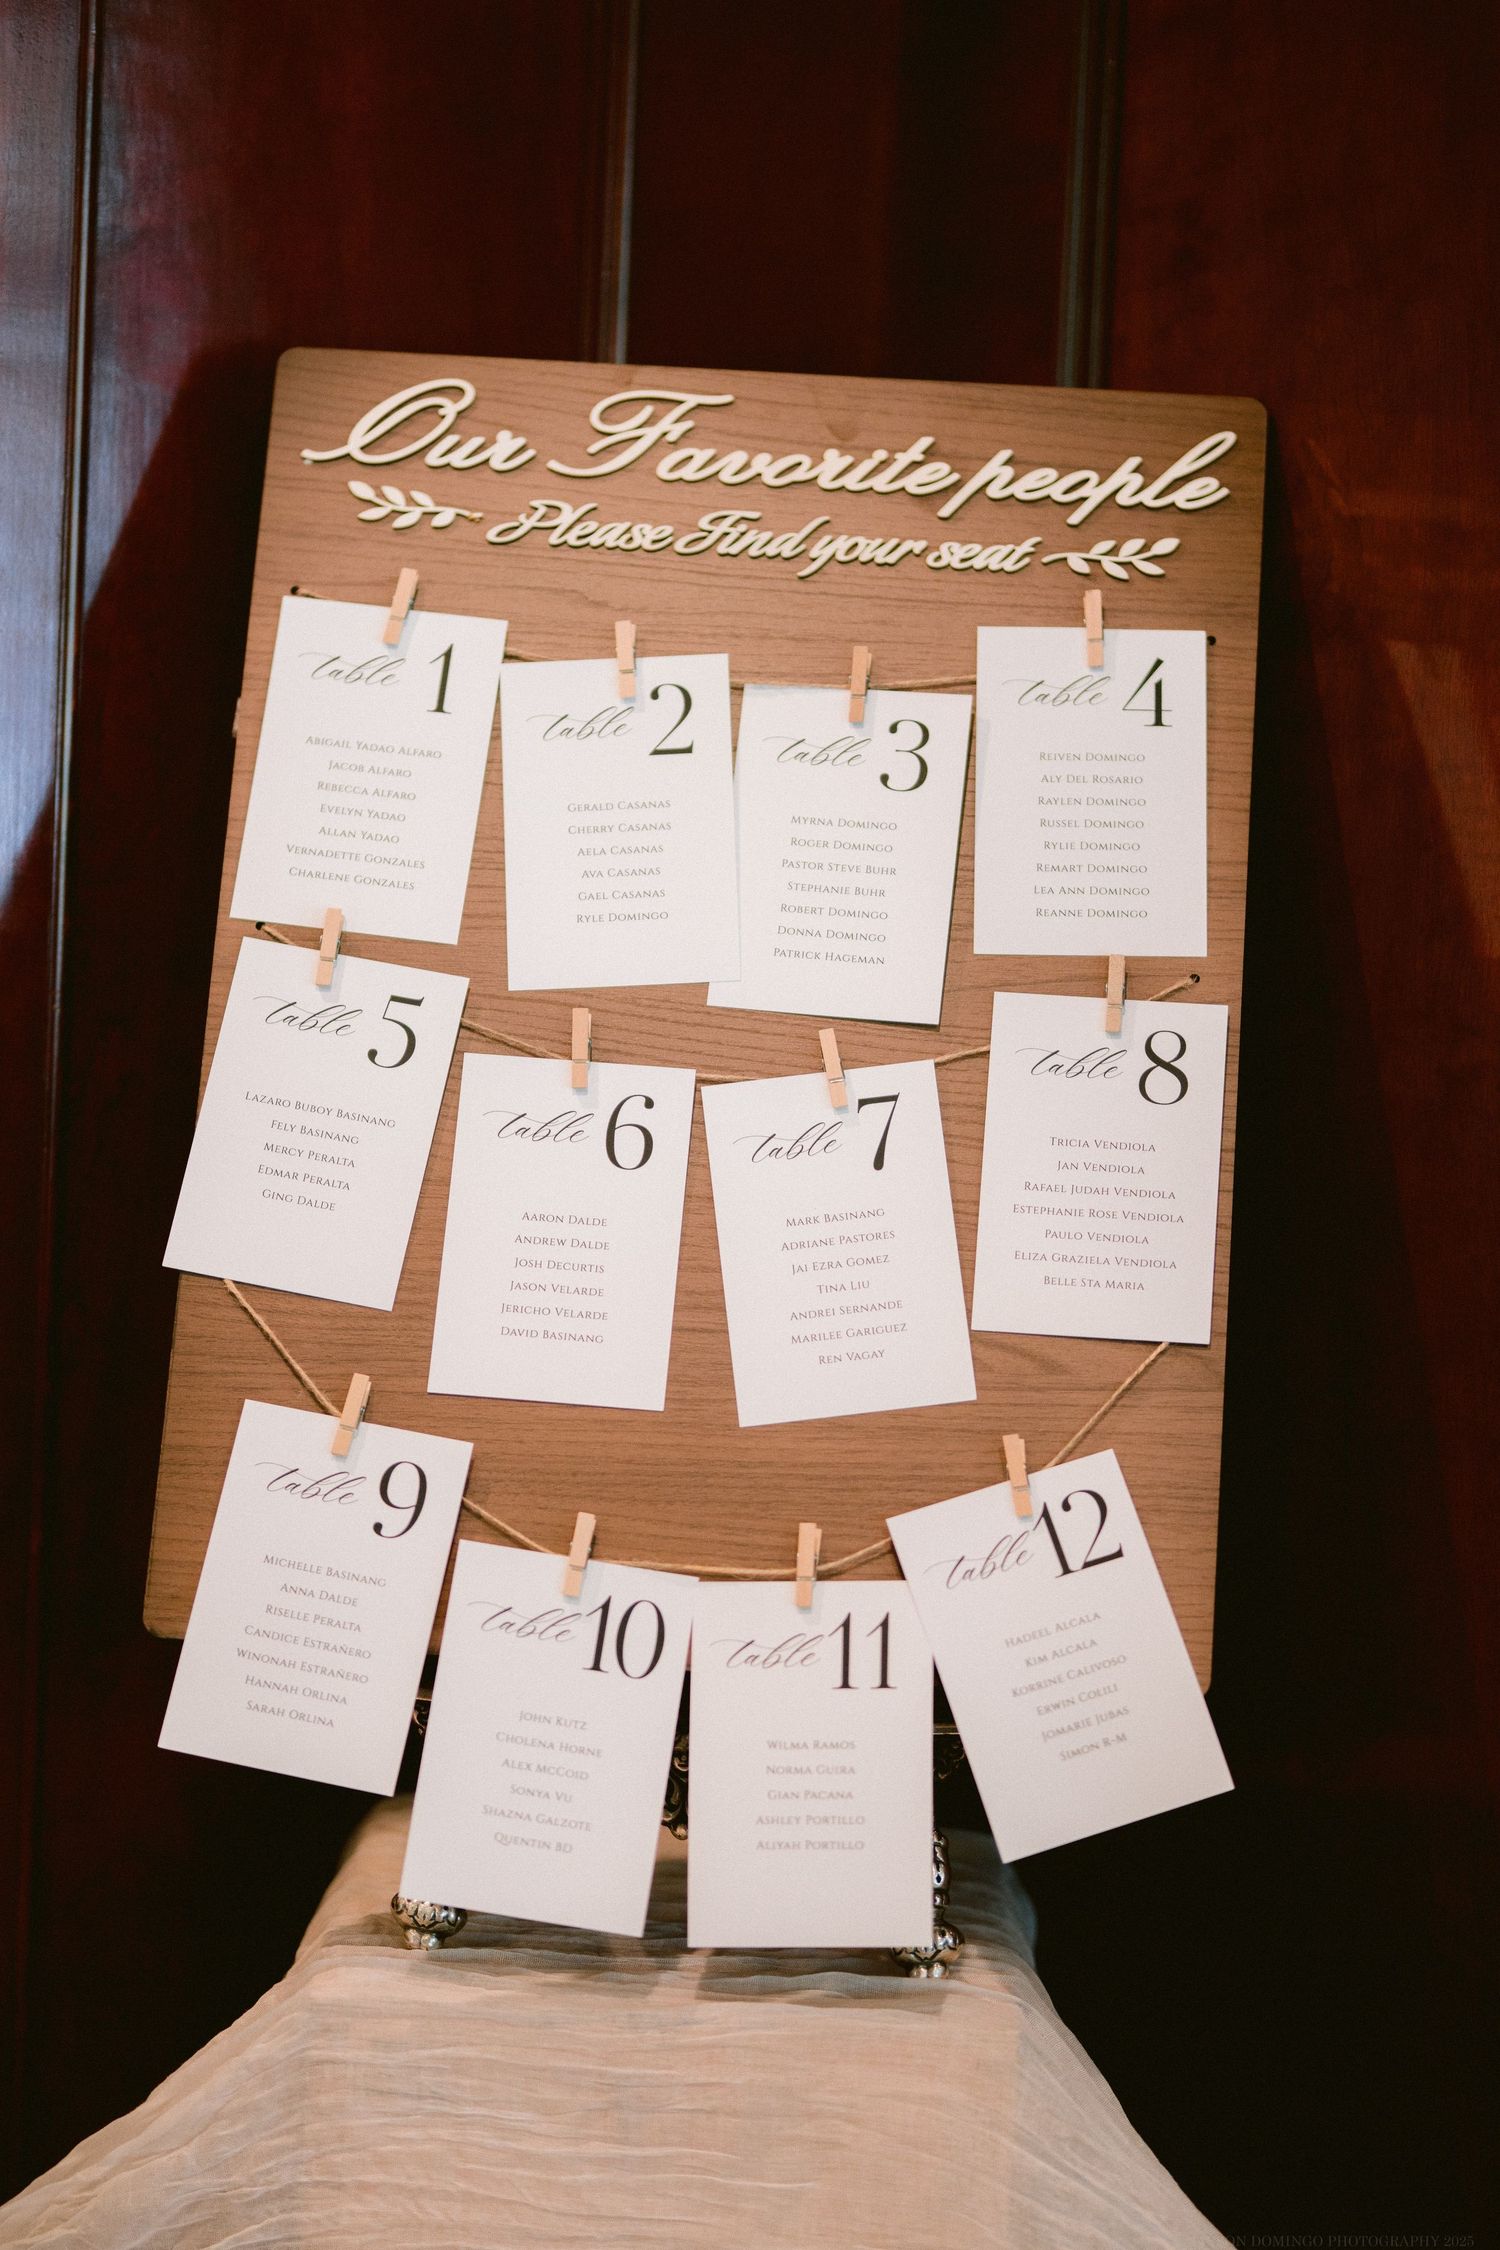 Our Favorite people
Please Find your seat
table 1
Abigail Yadao Alfaro
Jacob Alfaro
Rebecca Alfaro
Evelyn Yadao
Allan Yadao
Vernadette Gonzales
Charlene Gonzales
table 2
Gerald Casanas
Cherry Casanas
Aela Casanas
Ava Casanas
Gael Casanas
Ryle Domingo
table 3
Myrna Domingo
Roger Domingo
Pastor Steve Buhr
Stephanie Buhr
Robert Domingo
Donna Domingo
Patrick Hageman
table 4
Reiven Domingo
Aly Del Rosario
Raylen Domingo
Russel Domingo
Rylie Domingo
Remart Domingo
Lea Ann Domingo
Reanne Domingo
table 5
Lazaro Buboy Basinang
Fely Basinang
Mercy Peralta
Edmar Peralta
Ging Dalde
table 6
Aaron Dalde
Andrew Dalde
Josh Decurtis
Jason Velarde
Jericho Velarde
David Basinang
table 7
Mark Basinang
Adriane Pastores
Jai Ezra Gomez
Tina Liu
Andrei Sernande
Marilee Gariguez
Ren Vagay
table 8
Tricia Vendiola
Jan Vendiola
Rafael Judah Vendiola
Estephanie Rose Vendiola
Paulo Vendiola
Eliza Graziela Vendiola
Belle Sta Maria
table 9
Michelle Basinang
Anna Dalde
Riselle Peralta
Candice Estrañero
Winonah Estrañero
Hannah Orlina
Sarah Orlina
table 10
John Kutz
Cholena Horne
Alex McCoid
Sonya Vu
Shazna Galzote
Quentin BD
table 11
Wilma Ramos
Norma Guira
Gian Pacana
Ashley Portillo
Aliyah Portillo
table 12
Hadeel Alcala
Kim Alcala
Korrine Calivoso
Erwin Colili
Jomarie Jubas
Simon R-M
DOMINGO PHOTOGRAPHY 2025